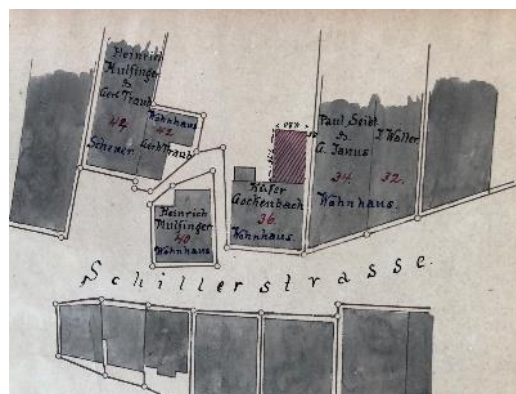 Heinrich
Mulfinger
&
Gerh Traub
42
Scheuer
Wohnhaus
42
Gerh Traub
Heinrich
Mulfinger
40
Wohnhaus
Käfer
Gockenbach
36.
Wohnhaus.
Paul Seibt
&
A. Janus
34.
Wohnhaus.
J Waller
32.
Schillerstrasse.